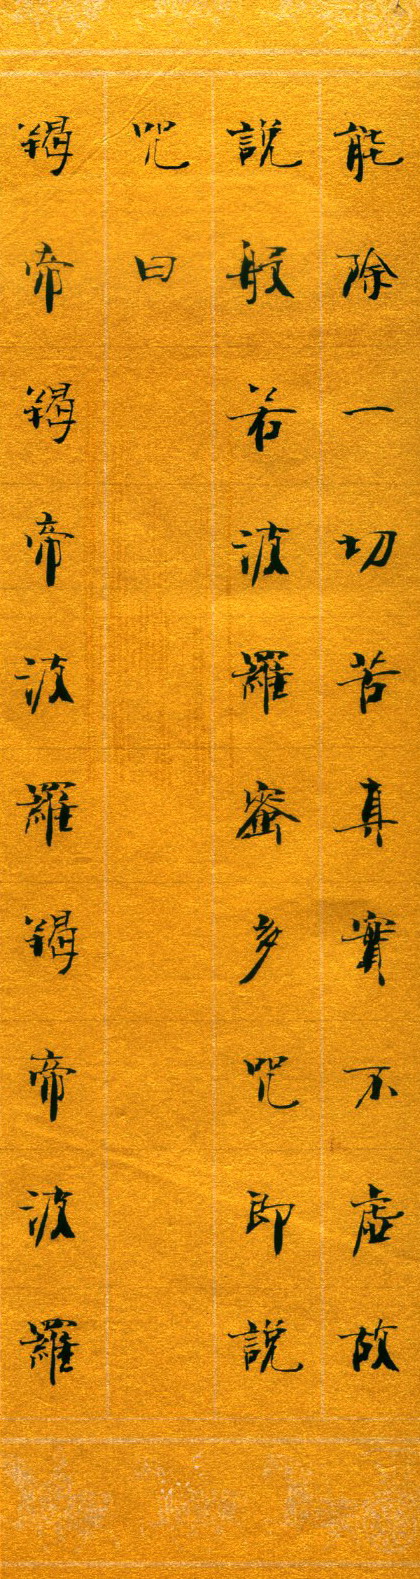 能除一切苦真實不虛故
說般若波羅蜜多咒即說
咒曰
羯帝羯帝波羅羯帝波羅